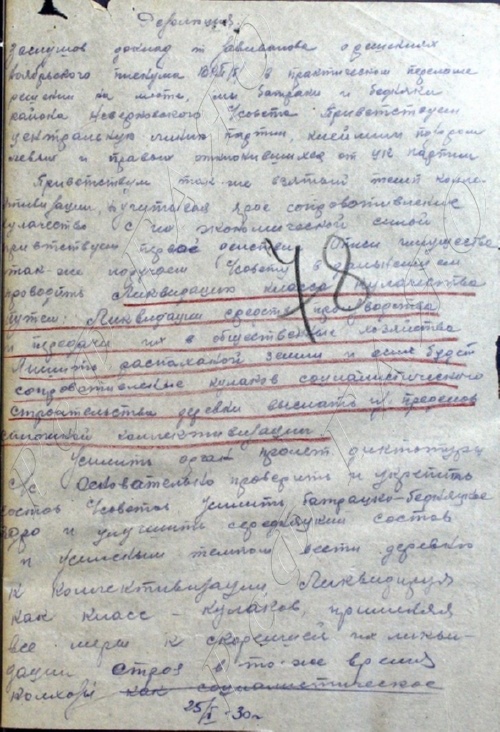 Резолюция.
Заслушав доклад т о решениях
ноябрьского пленума ВКП/б в практическом
решении на места, мы батраки и бедняки
района Усовета Приветствуем
центральную линию партии, клеймим позором
левых и правых отклонившихся от ЦК партии
Приветствуем так-же взятый темп колле-
ктивизации, учитывая ярое сопротивление
кулачества с их экономической силой
приветствуем опись имущества
так-же поручаем Усовету в дальнейшем
проводить Ликвидацию класса кулачества
путем: Ликвидации средств производства
и передачи их в общественные хозяйства
Лишить распаханой земли и если будет
сопротивление кулаков социалистического
строительства деревни выслать из пределов
сплошной коллективизации
Усилить орган пролет диктатуру
с/с Основательно проверить и укрепить
состав Усоветов Усилить батрацко-бедняцкое
ядро и улучшить середняцкий состав
и усиленым темпом вести деревню
к коллективизации Ликвидируя
как класс - кулаков, применяя
все меры к скорейшей их ликви-
дации строя в то-же время
колхозы как социалистическое
25/I - 30г
78